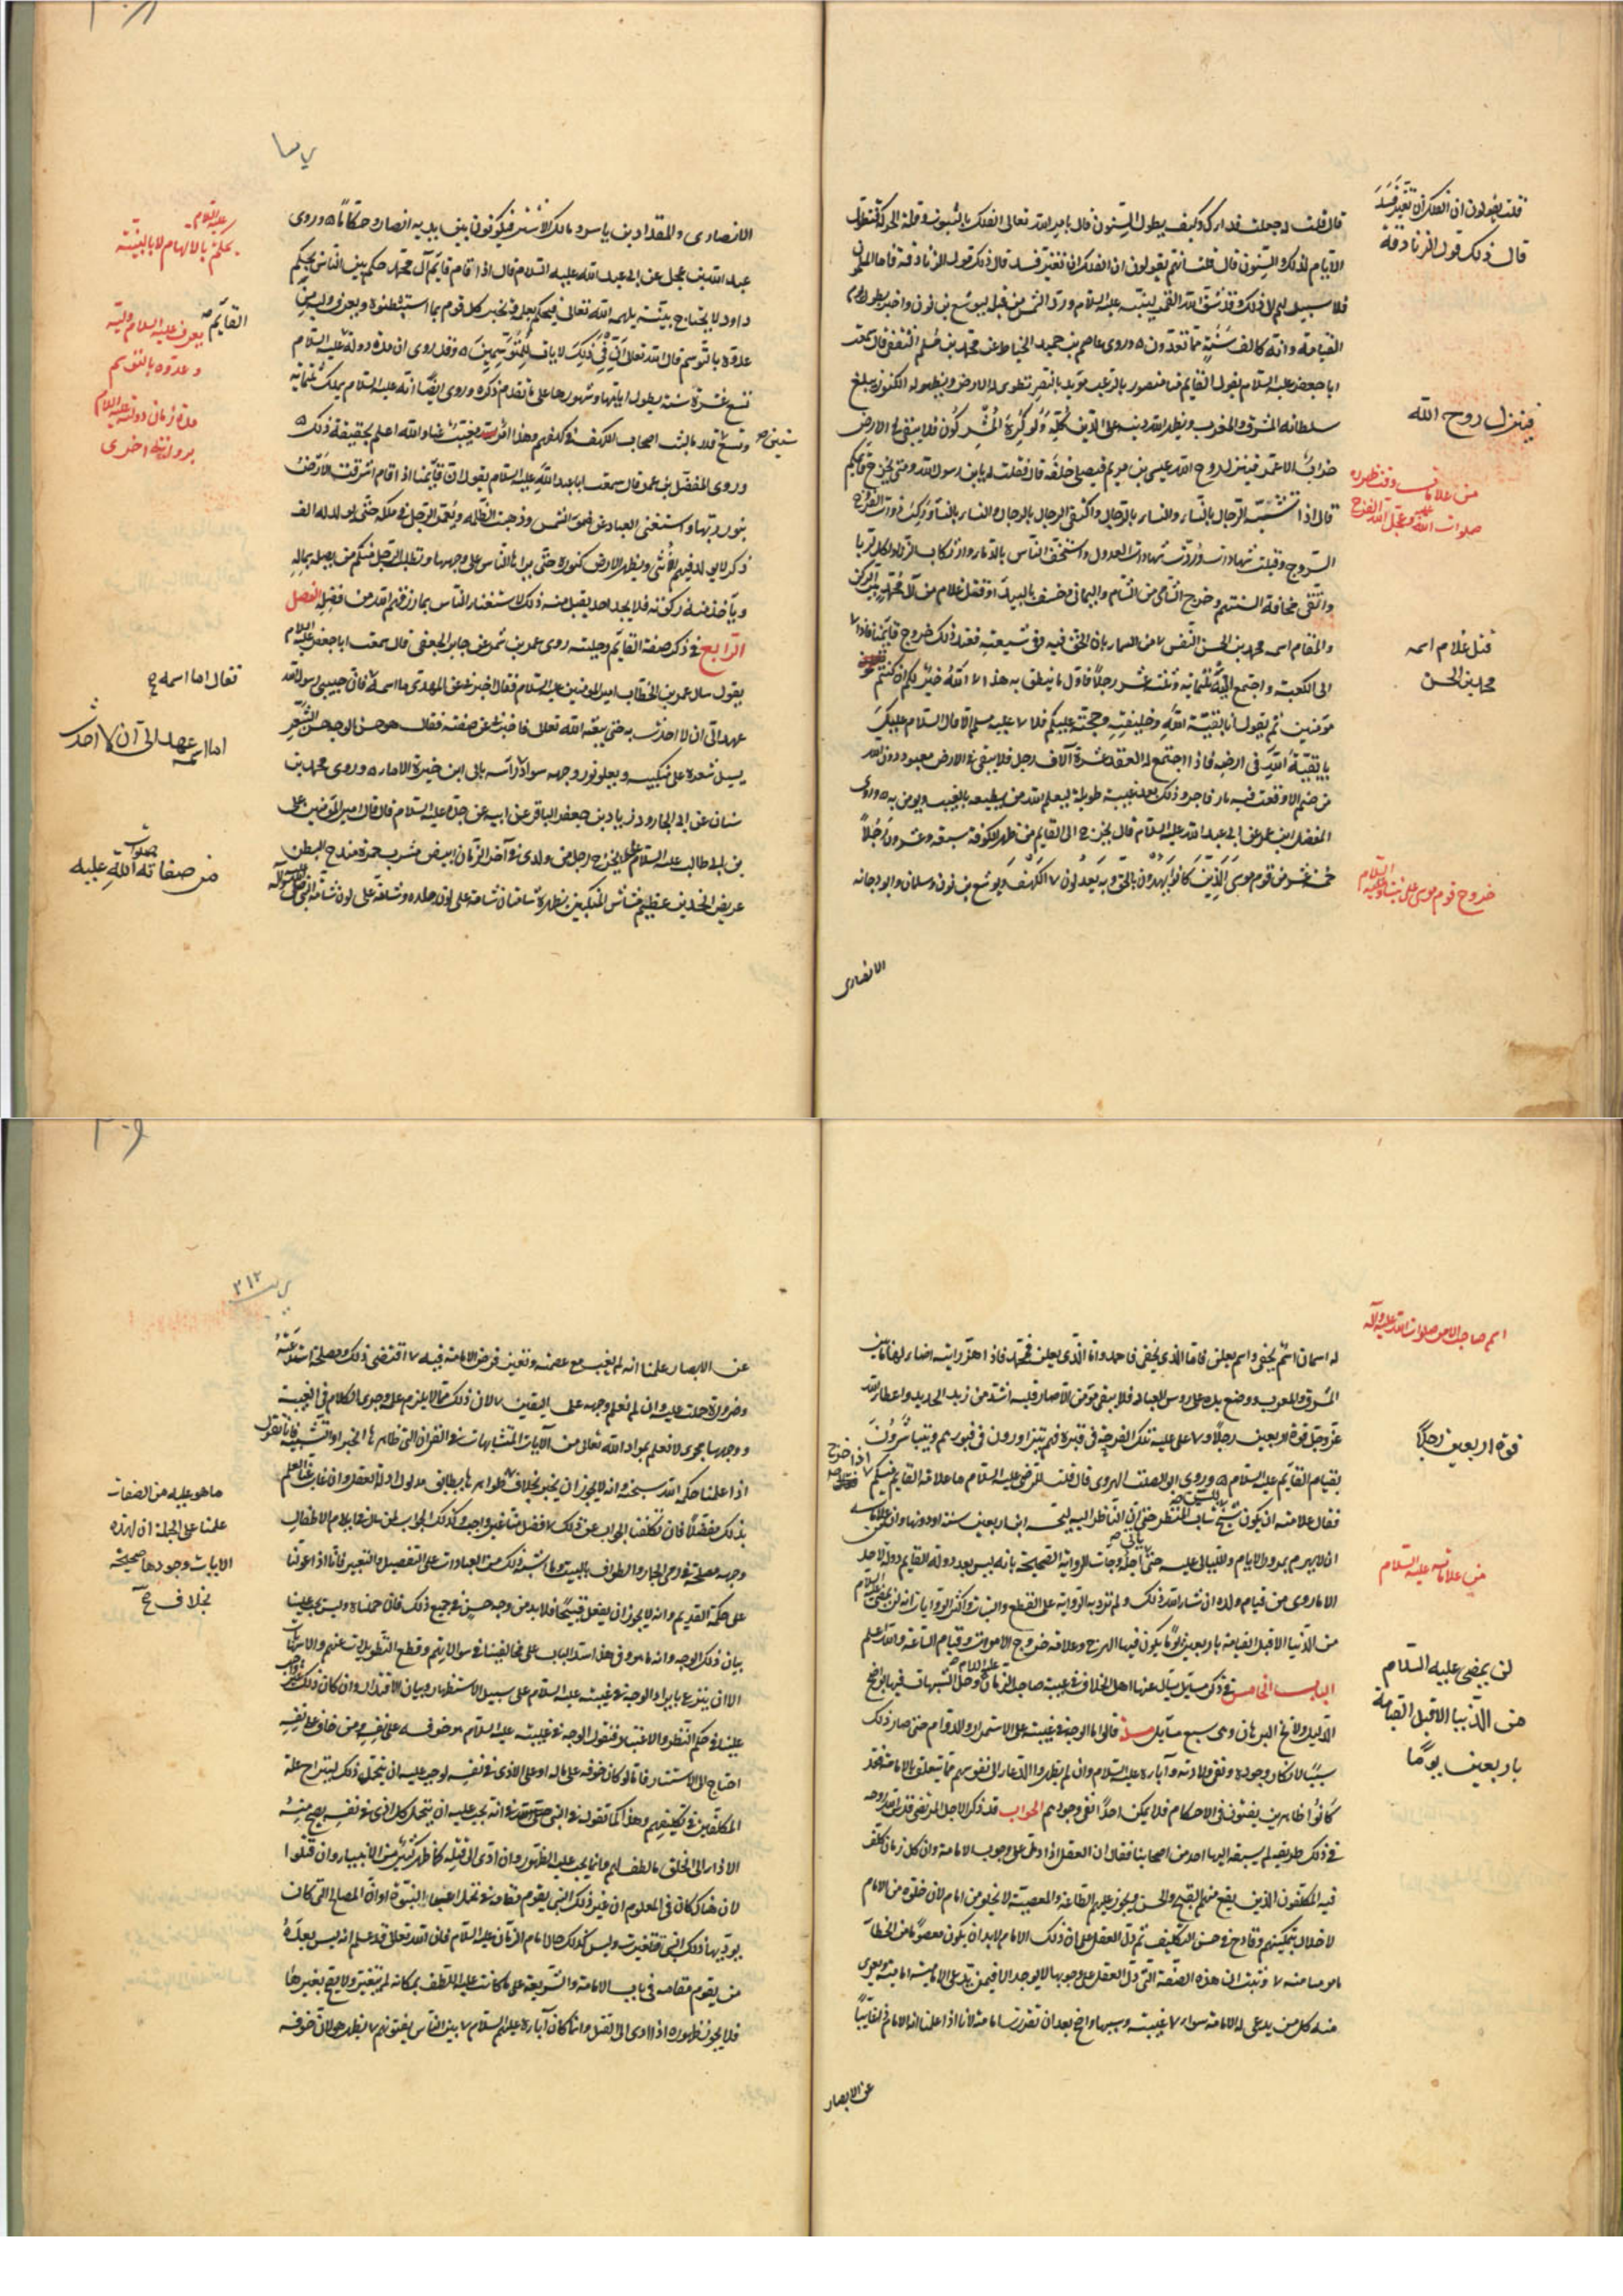 قال قلت له جعلت فداك وكيف يطول السنون قال يأمر الله تعالى الفلك بالثبوت وقلة الحركة فتطول
الايام لذلك والسنون قال قلت انهم يقولون ان الفلك ان تغير فسد قال ذلك قول الزنادقة فاما المسلمون
فلا سبيل لهم الى ذلك وقد شق الله القمر لنبيه عليه السلام ورد الشمس من قبل ليوشع بن نون واخبر بطول يوم
القيامة وانه كالف سنة مما تعدون ه وروى عاصم بن حميد الحناط عن محمد بن مسلم الثقفي قال سمعت
ابا جعفر عليه السلام يقول القايم منا منصور بالرعب مويد بالنصر تطوى له الارض وتظهر له الكنوز يبلغ
سلطانه المشرق والمغرب ويظهر الله دينه على الدين كله ولو كره المشركون فلا يبقى في الارض
خراب الا عمر وينزل روح الله عيسى بن مريم فيصلي خلفه قال فقلت له يابن رسول الله ومتى يخرج قايمكم
قال اذا تشبه الرجال بالنساء والنساء بالرجال واكتفى الرجال بالرجال والنساء بالنساء وركب ذوات الفروج
السروج وقبلت شهادات وردت شهادات العدول واستخف الناس بالدماء وارتكاب الزنا واكل الربا
واتقي مخافة السنتهم وخرج من الشام واليماني وخسف بالبيداء وقتل غلام من آل محمد بين الركن
والمقام اسمه محمد بن الحسن النفس من السماء بان الحق فيه وفي شيعته فعند ذلك خروج قايمنا فاذا
الى الكعبة واجتمع اليه ثلثمائة وثلثة عشر رجلا فاول ما ينطق به هذه الاية بقية الله خير لكم ان كنتم
مؤمنين ثم يقول انا بقية الله وخليفته وحجته عليكم فلا عليه مسلم الا قال السلام عليك
يا بقية الله في ارضه فاذا اجتمع له العقد عشرة آلاف رجل فلا يبقى في الارض معبود دون الله
من صنم الا وقعت فيه نار فاحترق وذلك بعد غيبة طويلة ليعلم الله من يطيعه بالغيب ويومن به ه وروى
المفضل بن عمر عن ابي عبد الله عليه السلام قال يخرج الى القايم من ظهر الكوفة سبعة وعشرون رجلا
خمسة عشر من قوم موسى الذين كانوا يهدون بالحق وبه يعدلون الكهف ويوشع بن نون وسلمان وابو دجانة
الانصارى
قلت يقولون ان الفلك ان تغير فسد
قال ذلك قول الزنادقة
فينزل روح الله
من علامات وقت ظهوره
صلوات الله عليه وعجل الله الفرج
قتل غلام اسمه
محمد بن الحسن
خروج قوم موسى على نبينا وعليه السلام
الانصارى والمقداد بن ياسر ومالك الاشتر فيكونون بين يديه انصارا وحكاما ه وروى
عبد الله بن عجلان عن ابي عبد الله عليه السلام قال اذا قام قايم آل محمد حكم بين الناس بحكم
داود لا يحتاج بينة يلهمه الله تعالى فيحكم بعلمه ويخبر كل قوم بما استبطنوه ويعرف وليه من
عدوه بالتوسم قال الله تعالى ان في ذلك لايات للمتوسمين ه وقد روى ان مدة دولة عليه السلام
تسع عشرة سنة يطول ايامها وشهورها على ما تقدم ذكره وروى ايضا انه عليه السلام يملك ثلثمائة
وتسع قدر ما لبث اصحاب الكهف في كهفهم وهذا امر مغيب عنا والله اعلم بحقيقة ذلك ه
وروى المفضل بن عمر قال سمعت ابا عبد الله عليه السلام يقول ان قايمنا اذا قام اشرقت الارض
بنور ربها واستغنى العباد عن ضوء الشمس وذهبت الظلمة ويعمر الرجل في ملكه حتى يولد له الف
ذكر لا يولد فيهم انثى وتظهر الارض كنوزها حتى يراها الناس على وجهها ويطلب الرجل منكم من يصله بماله
وياخذ منه زكوته فلا يجد احد يقبل منه ذلك لاستغناء الناس بما رزقهم الله من فضله الفصل
الرابع في ذكر صفة القايم وحليته روى عمرو بن شمر عن جابر الجعفي قال سمعت ابا جعفر عليه السلام
يقول سال عمر بن الخطاب امير المومنين عليه السلام فقال اخبرني عن المهدي ما اسمه فان حبيبي رسول الله
عهد الي ان لا احدث به حتى يبعثه الله تعالى قال فاخبرني عن صفته فقال هو حسن الوجه حسن الشعر
يسيل شعره على منكبيه ويعلو نور وجهه سواد راسه بابي ابن خيرة الاماء ه وروى محمد بن
سنان عن ابي الجارود زياد بن جعفر الباقر عن ابيه عن جده عليه السلام قال قال امير المومنين علي
بن ابي طالب عليه السلام يخرج رجل من ولدي في آخر الزمان ابيض مشرب حمرة مندح البطن
عريض الفخذين عظيم مشاش المنكبين بظهره شامتان شامة على لون جلده وشامة على لون شامة النبي صلى الله عليه وآله
عليه السلام
يحكم بالالهام لا بالبينة
القايم
يعرف عليه السلام وليه
وعدوه بالتوسم
مدة زمان دولته عليه السلام
برواية اخرى
سنين
فقال اما اسمه
اما اسمه عهد الي ان لا احدث
من صفاته صلوات الله عليه
له اسمان اسم يخفى واسم يعلن فاما الذي يخفى فاحمد واما الذي يعلن فمحمد فاذا هز رايته اضاء لها ما بين
المشرق والمغرب ووضع يده على روس العباد فلا يبقى مومن الا صار قلبه اشد من زبر الحديد واعطاه الله
عز وجل قوة اربعين رجلا ولا عليه تلك الفرحة في قبره فهم يتزاورون في قبورهم ويتباشرون
بقيام القايم عليه السلام ه وروى ابو الصلت الهروى قال قلت للرضى عليه السلام ما علامة القايم منكم اذا خرج
فقال علامته ان يكون شيخ السن شاب المنظر حتى ان الناظر اليه ليحسبه ابن اربعين سنة او دونها وان من علاماته
ان لا يهرم بمرور الايام والليالي عليه حتى ياتي اجله وجات الرواية الصحيحة بانه ليس بعد دولة القايم دولة لاحد
الا ما روى من قيام ولده ان شاء الله ذلك ولم ترد به الرواية على القطع والبتات واكثر الروايات انه لن يمضى عليه السلام
من الدنيا الا قبل القيامة باربعين يوما يكون فيها الهرج وعلامة خروج الاموات وقيام الساعة والله اعلم
الباب الخامس في ذكر مسايل يسال عنها اهل الخلاف في غيبة صاحب الزمان عليه السلام وحل الشبهات فيها بواضح
الدليل ولايح البرهان وهي سبع مسايل مسئلة قالوا ما الوجه في غيبته على الاستمرار والدوام حتى صار ذلك
سببا لانكار وجوده ونفي ولادته وآباؤه عليه السلام وان لم يظهروا الدعاء الى نفوسهم فيما يتعلق بالامامة فقد
كانوا ظاهرين يفتون في الاحكام فلا يمكن احدا نفى وجودهم الجواب قد ذكر الاجل المرتضى قدس الله روحه
في ذلك طريقة لم يسبقه اليها احد من اصحابنا فقال ان العقل اذا دل على وجوب الامامة وان كل زمان كلف
فيه المكلفون الذين يقع منهم القبيح والحسن ويجوز عليهم الطاعة والمعصية لا يخلو من امام لان خلوه من الامام
لاخلال بتمكينهم وقادح في حسن التكليف ثم دل العقل على ان ذلك الامام لا بد ان يكون معصوما من الخطا
مامونا منه وثبت ان هذه الصفة التي دل العقل على وجوبها لا يوجد الا فيمن تدعى الامامية امامته ويعرى
منه كل من يدعى له الامامة سواه غيبته وسببها واضح بعد ان تقررت امامته لانا اذا علمنا انه الامام غايبا
عن الابصار
اسم صاحب الامر صلوات الله عليه وآله
قوة اربعين رجلا
من علاماته عليه السلام
لن يمضى عليه السلام
من الدنيا الا قبل القيامة
باربعين يوما
٣١٢
عن الابصار علمنا انه لم يغب مع عصمته وتعين فرض الامامة فيه اقتضى ذلك ومصلحة استدعته
وضرورة حملت عليه وان لم نعلم وجهه على اليقين لان ذلك مما لا يلزم علمه وجرى الكلام في الغيبة
ووجهها مجرى لا نعلم بمراد الله تعالى من الآيات المتشابهات في القرآن التي ظاهرها الجبر او التشبيه فانا نقول
اذا علمنا حكمة الله سبحانه وانه لا يجوز ان يخبر بخلاف ظواهرها يطابق مدلول ادلة العقل وان غاب عنا العلم
بذلك مفصلا فان تكلفنا الجواب عن ذلك فضل منا غير واجب وكذلك الجواب لمن سال عن ايلام الاطفال
وجهه مصلحة في رمي الجمار والطواف بالبيت وما اشبه ذلك من العبادات على التفصيل والتعيين فانا اذا عولنا
على حكمة القديم وانه لا يجوز ان يفعل قبيحا فلا بد من وجه حسن في جميع ذلك فان جهلناه وليس يجب علينا
بيان ذلك الوجه وانه ما هو وفي هذا سد الباب على مخالفينا في سوالاتهم وقطع التطويلات عنهم والاسهابات
الا ان نتبرع بايراد الوجه في غيبته عليه السلام على سبيل الاستظهار وبيان الاقتدار وان كان ذلك
علينا في حكم النظر والاعتبار فنقول الوجه في غيبته عليه السلام هو خوفه على نفسه ومن خاف على نفسه
احتاج الى الاستتار فاما لو كان خوفه على ماله او على الاذى في نفسه لوجب عليه ان يتحمل ذلك ليزاح علة
المكلفين في تكليفهم وهذا كما نقوله في النبي في انه يجب عليه ان يتحمل كل اذى في نفسه حتى يصح منه
الاداء الى الخلق ما هو لطف لهم وانما يجب عليه الظهور وان ادى الى قتله كما ظهر كثير من الانبياء وان قتلوا
لان هناك كان في المعلوم ان غير ذلك النبي يقوم مقامه في تحمل اعباء النبوة او ان المصالح التي كان
يوديها ذلك النبي قد تغيرت وليس كذلك حال امام الزمان عليه السلام فان الله تعالى قد علم انه ليس بعده
من يقوم مقامه في باب الامامة والشريعة على ما كانت عليه واللطف بمكانه لم يتغير ولا يصح بغيره
فلا يجوز ظهوره اذا ادى الى القتل وانما كان آباؤه عليهم السلام بين الناس يفتونهم ولم يظهر هو لان خوفه
ما هو عليه من الصفات
علمنا على الجملة ان لهذه
الايات وجوها صحيحة
بخلاف